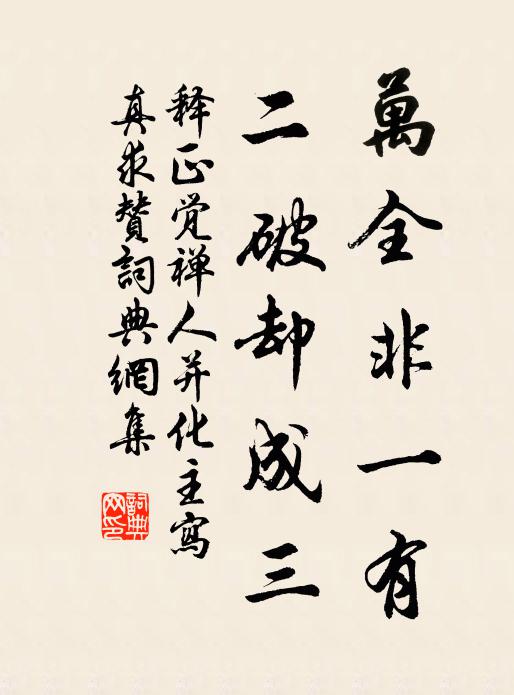 萬全非一有
二破却成三
释正觉禅人并化主寫
真求賛詞典網集
詞典
网印